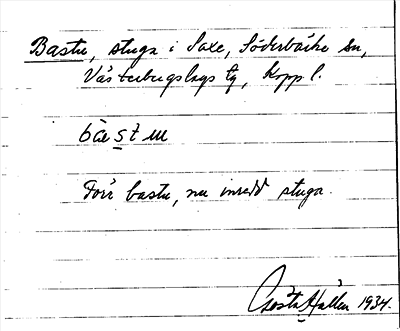 Bastu, stuga i Saxe, Söderbärke sn,
Västerbergslags tg, Kopp l.
bàstu
Förr bastu, nu inredd stuga.
Gösta Hallén 1934.